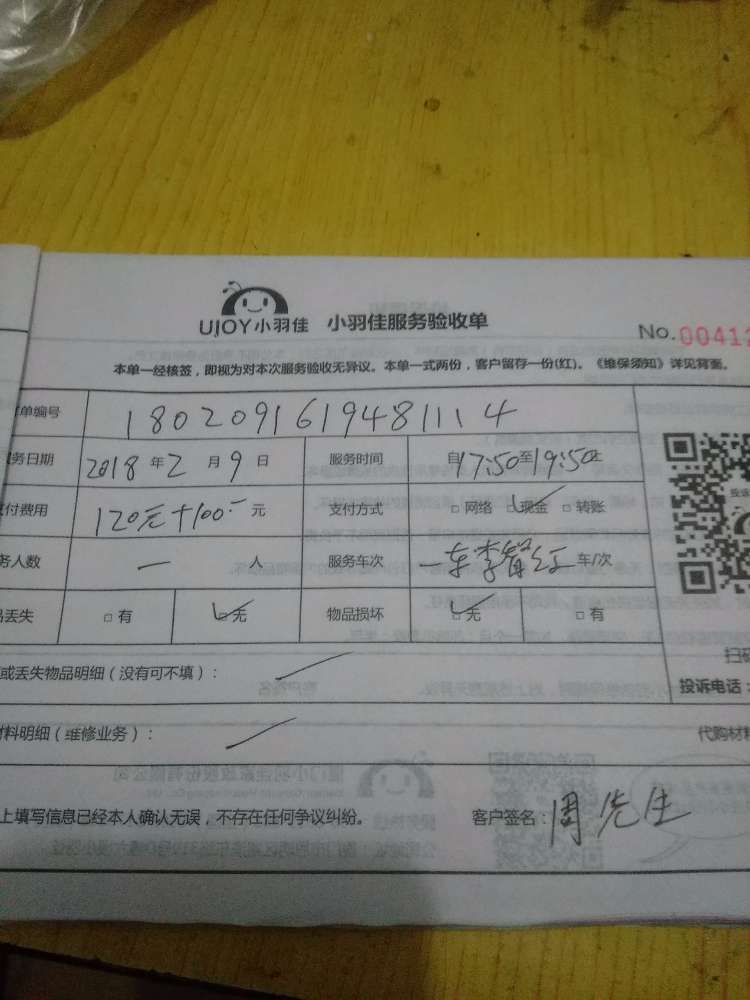 UJOY小羽佳 小羽佳服务验收单
No.00412
本单一经核签，即视为对本次服务验收无异议。本单一式两份，客户留存一份(红)。《维保须知》详见背面。
单编号 1802091619481114
务日期 2018年2月9日 服务时间 自17:50至19:50止
付费用 120元+100.-元 支付方式 □网络 □现金 □转账
务人数 一 人 服务车次 一车李智红 车/次
丢失 □有 □无 物品损坏 □无 □有
或丢失物品明细（没有可不填）：
扫码
投诉电话：
材料明细（维修业务）：
代购材料
上填写信息已经本人确认无误，不存在任何争议纠纷。 客户签名：周先生